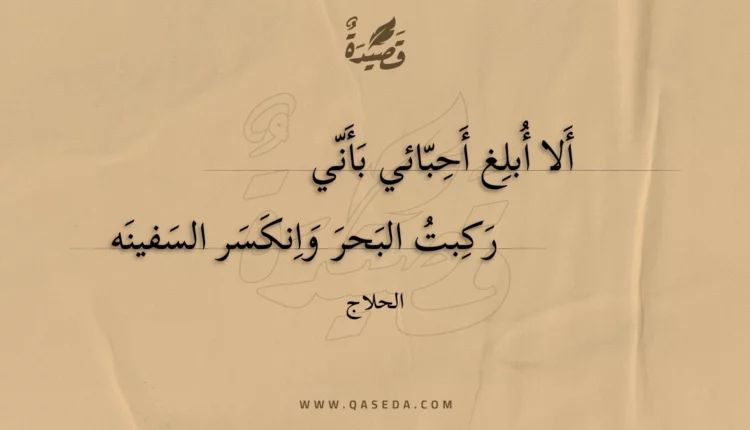 قَصِيدَةٌ
أَلا أُبلِغ أَحِبّائي بَأَنّي
رَكِبتُ البَحرَ وَاِنكَسَر السَفينَه
الحلاج
WWW.QASEDA.COM